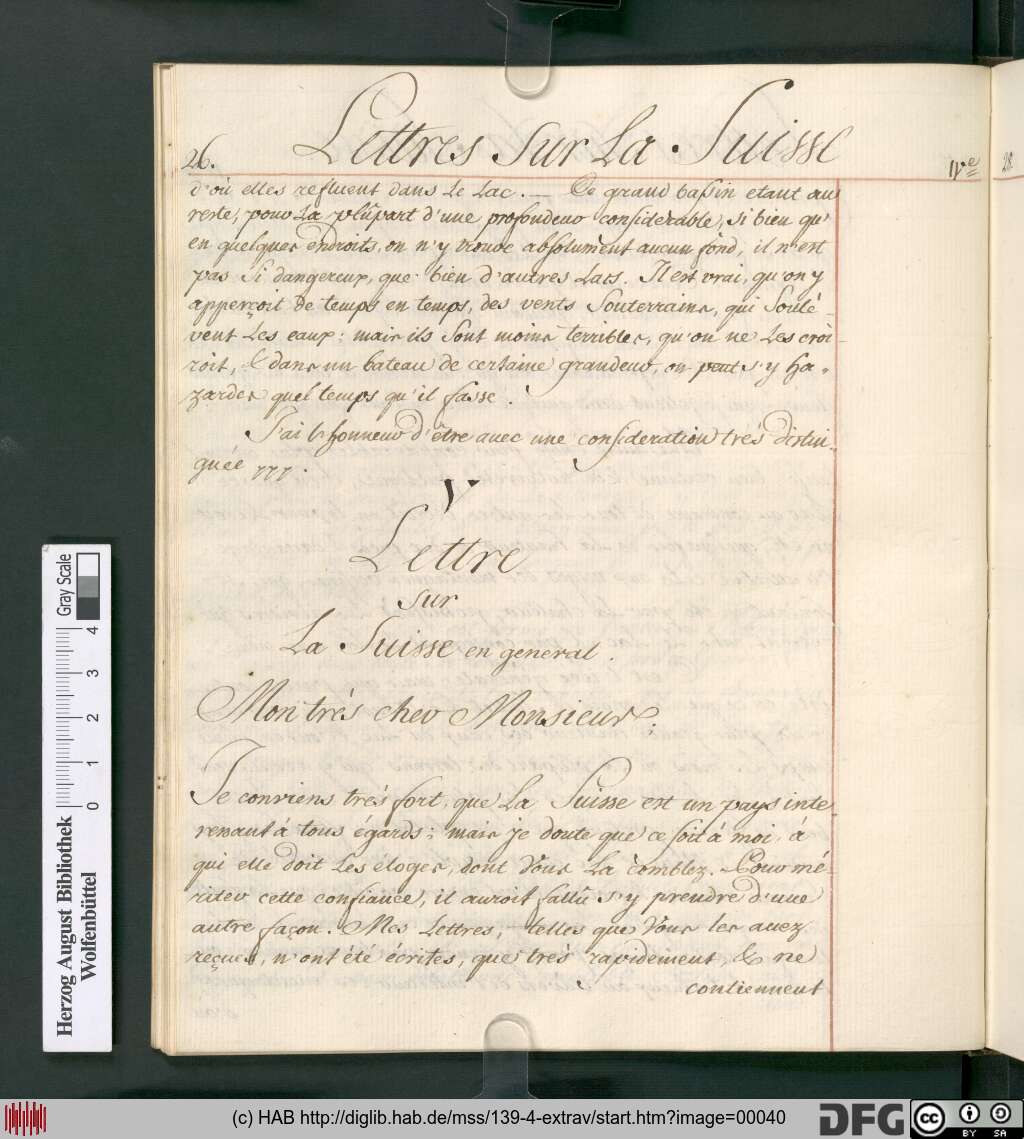 Lettres sur La Suisse
26.
IVe
28
d'où elles refluent dans Le Lac. — Ce grand bassin etant au
reste, pour La plûpart d'une profondeur considerable, si bien qu'
en quelques endroits, on n'y trouve absolument aucun fond, il n'est
pas Si dangereux, que bien d'autres Lacs. Il est vrai, qu'on y
apperçoit de temps en temps, des vents Souterrains, qui Soulè-
vent Les eaux; mais ils Sont moins terribles, qu'on ne Les croi-
roit, & dans un bateau de certaine grandeur, on peut s'y ha-
zarder quel temps qu'il fasse.
J'ai l'honneur d'être avec une consideration très distin-
guée
V
Lettre
sur
La Suisse en general.
Mon très cher Monsieur.
Je conviens très fort, que La Suisse est un pays inte
renant à tous égards; mais je doute que ce soit à moi, à
qui elle doit Les éloges, dont Vous La comblez. Pour mé-
riter cette confiance, il auroit fallû s'y prendre d'une
autre façon. Mes Lettres, telles que Vous les avez
reçues, n'ont été écrites, que très rapidement, & ne
contiennent
Gray Scale
0 1 2 3 4
Herzog August Bibliothek
Wolfenbüttel
(c) HAB http://diglib.hab.de/mss/139-4-extrav/start.htm?image=00040
DFG
cc
BY SA